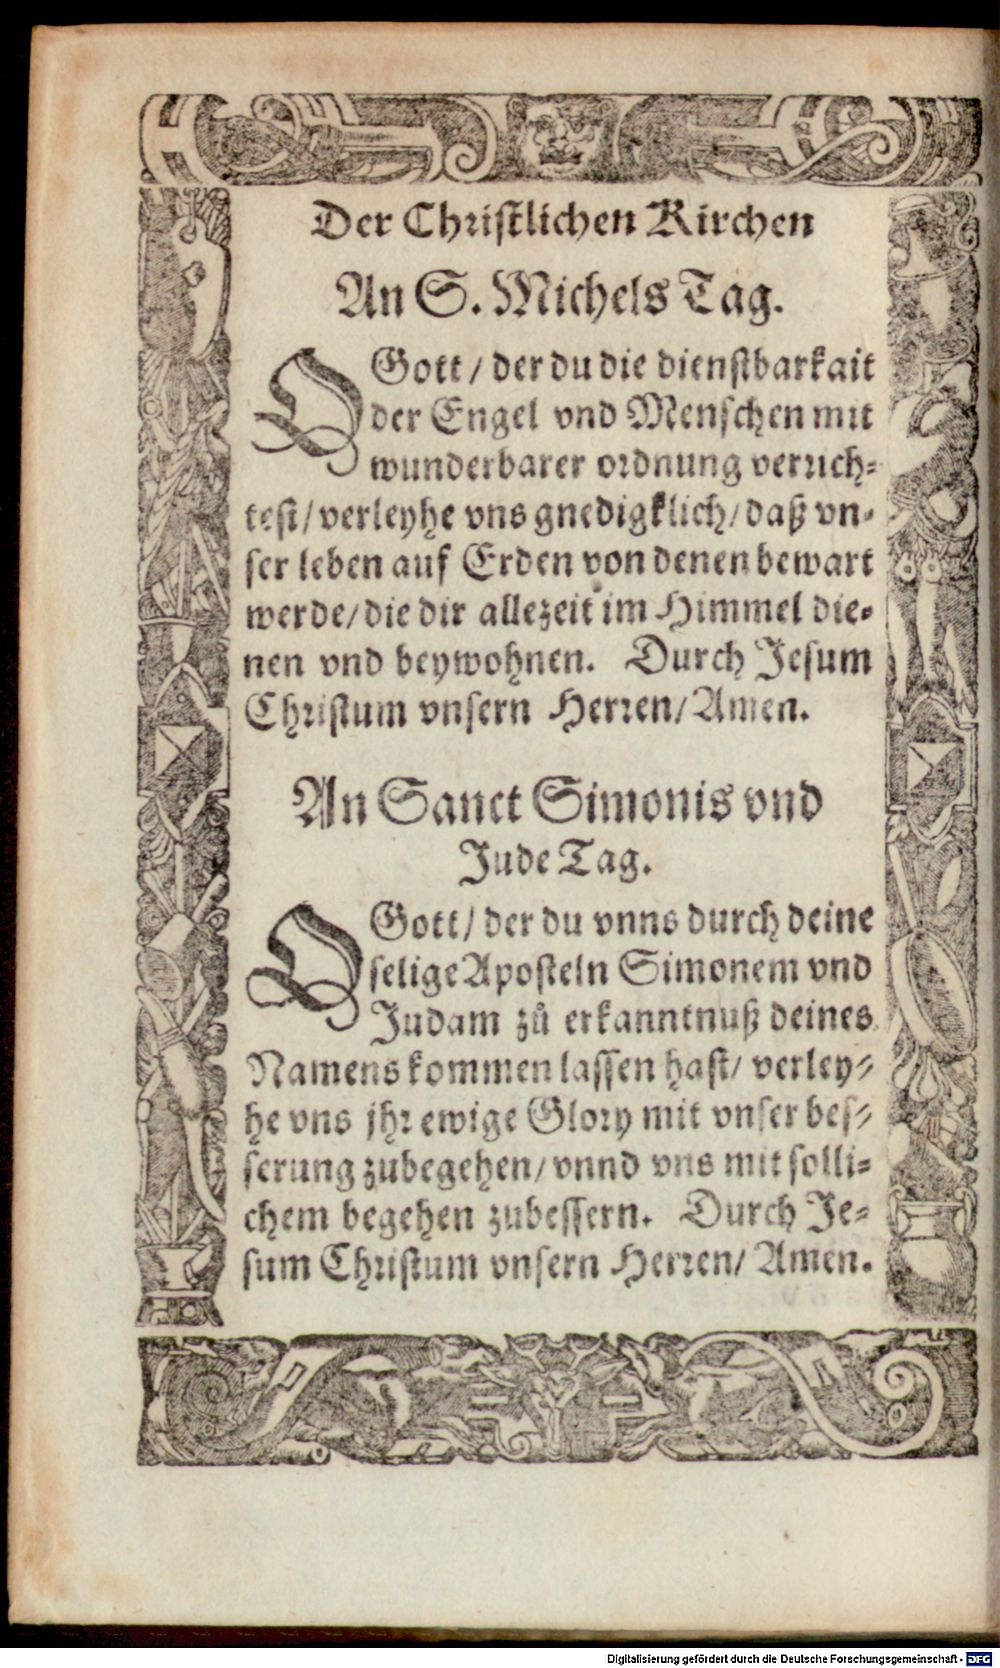 Der Christlichen Kirchen
An S. Michels Tag.
O Gott / der du die dienstbarkait
der Engel vnd Menschen mit
wunderbarer ordnung verrich=
test / verleyhe vns gnedigklich / daß vn=
ser leben auf Erden von denen bewart
werde / die dir allezeit im Himmel die=
nen vnd beywohnen. Durch Jesum
Christum vnsern Herren / Amen.
An Sanct Simonis vnd
Jude Tag.
O Gott / der du vnns durch deine
selige Aposteln Simonem vnd
Judam zů erkanntnuß deines
Namens kommen lassen hast / verley=
he vns jhr ewige Glory mit vnser bes=
serung zubegehen / vnnd vns mit solli=
chem begehen zubessern. Durch Je=
sum Christum vnsern Herren / Amen.
Digitalisierung gefördert durch die Deutsche Forschungsgemeinschaft - DFG